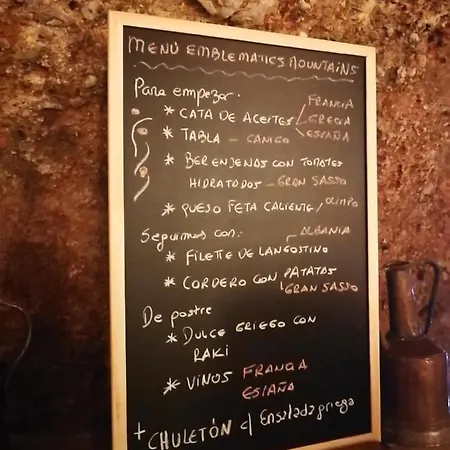 MENÚ EMBLEMATICS MOUNTAINS
Para empezar.
FRANCIA
* CATA DE ACEITES GRECIA
* TABLA - CANIGO ESPAÑA
* BERENJENAS CON TOMATES
HIDRATADOS - GRAN SASSO
* QUESO FETA CALIENTE / OLIMPO
Seguimos con: ALBANIA
* FILETE DE LANGOSTINO
* CORDERO CON PATATAS
GRAN SASSO
De postre
* DULCE GRIEGO CON
RAKI
* VINOS FRANCIA
ESPAÑA
+ CHULETÓN c/ Ensalada griega